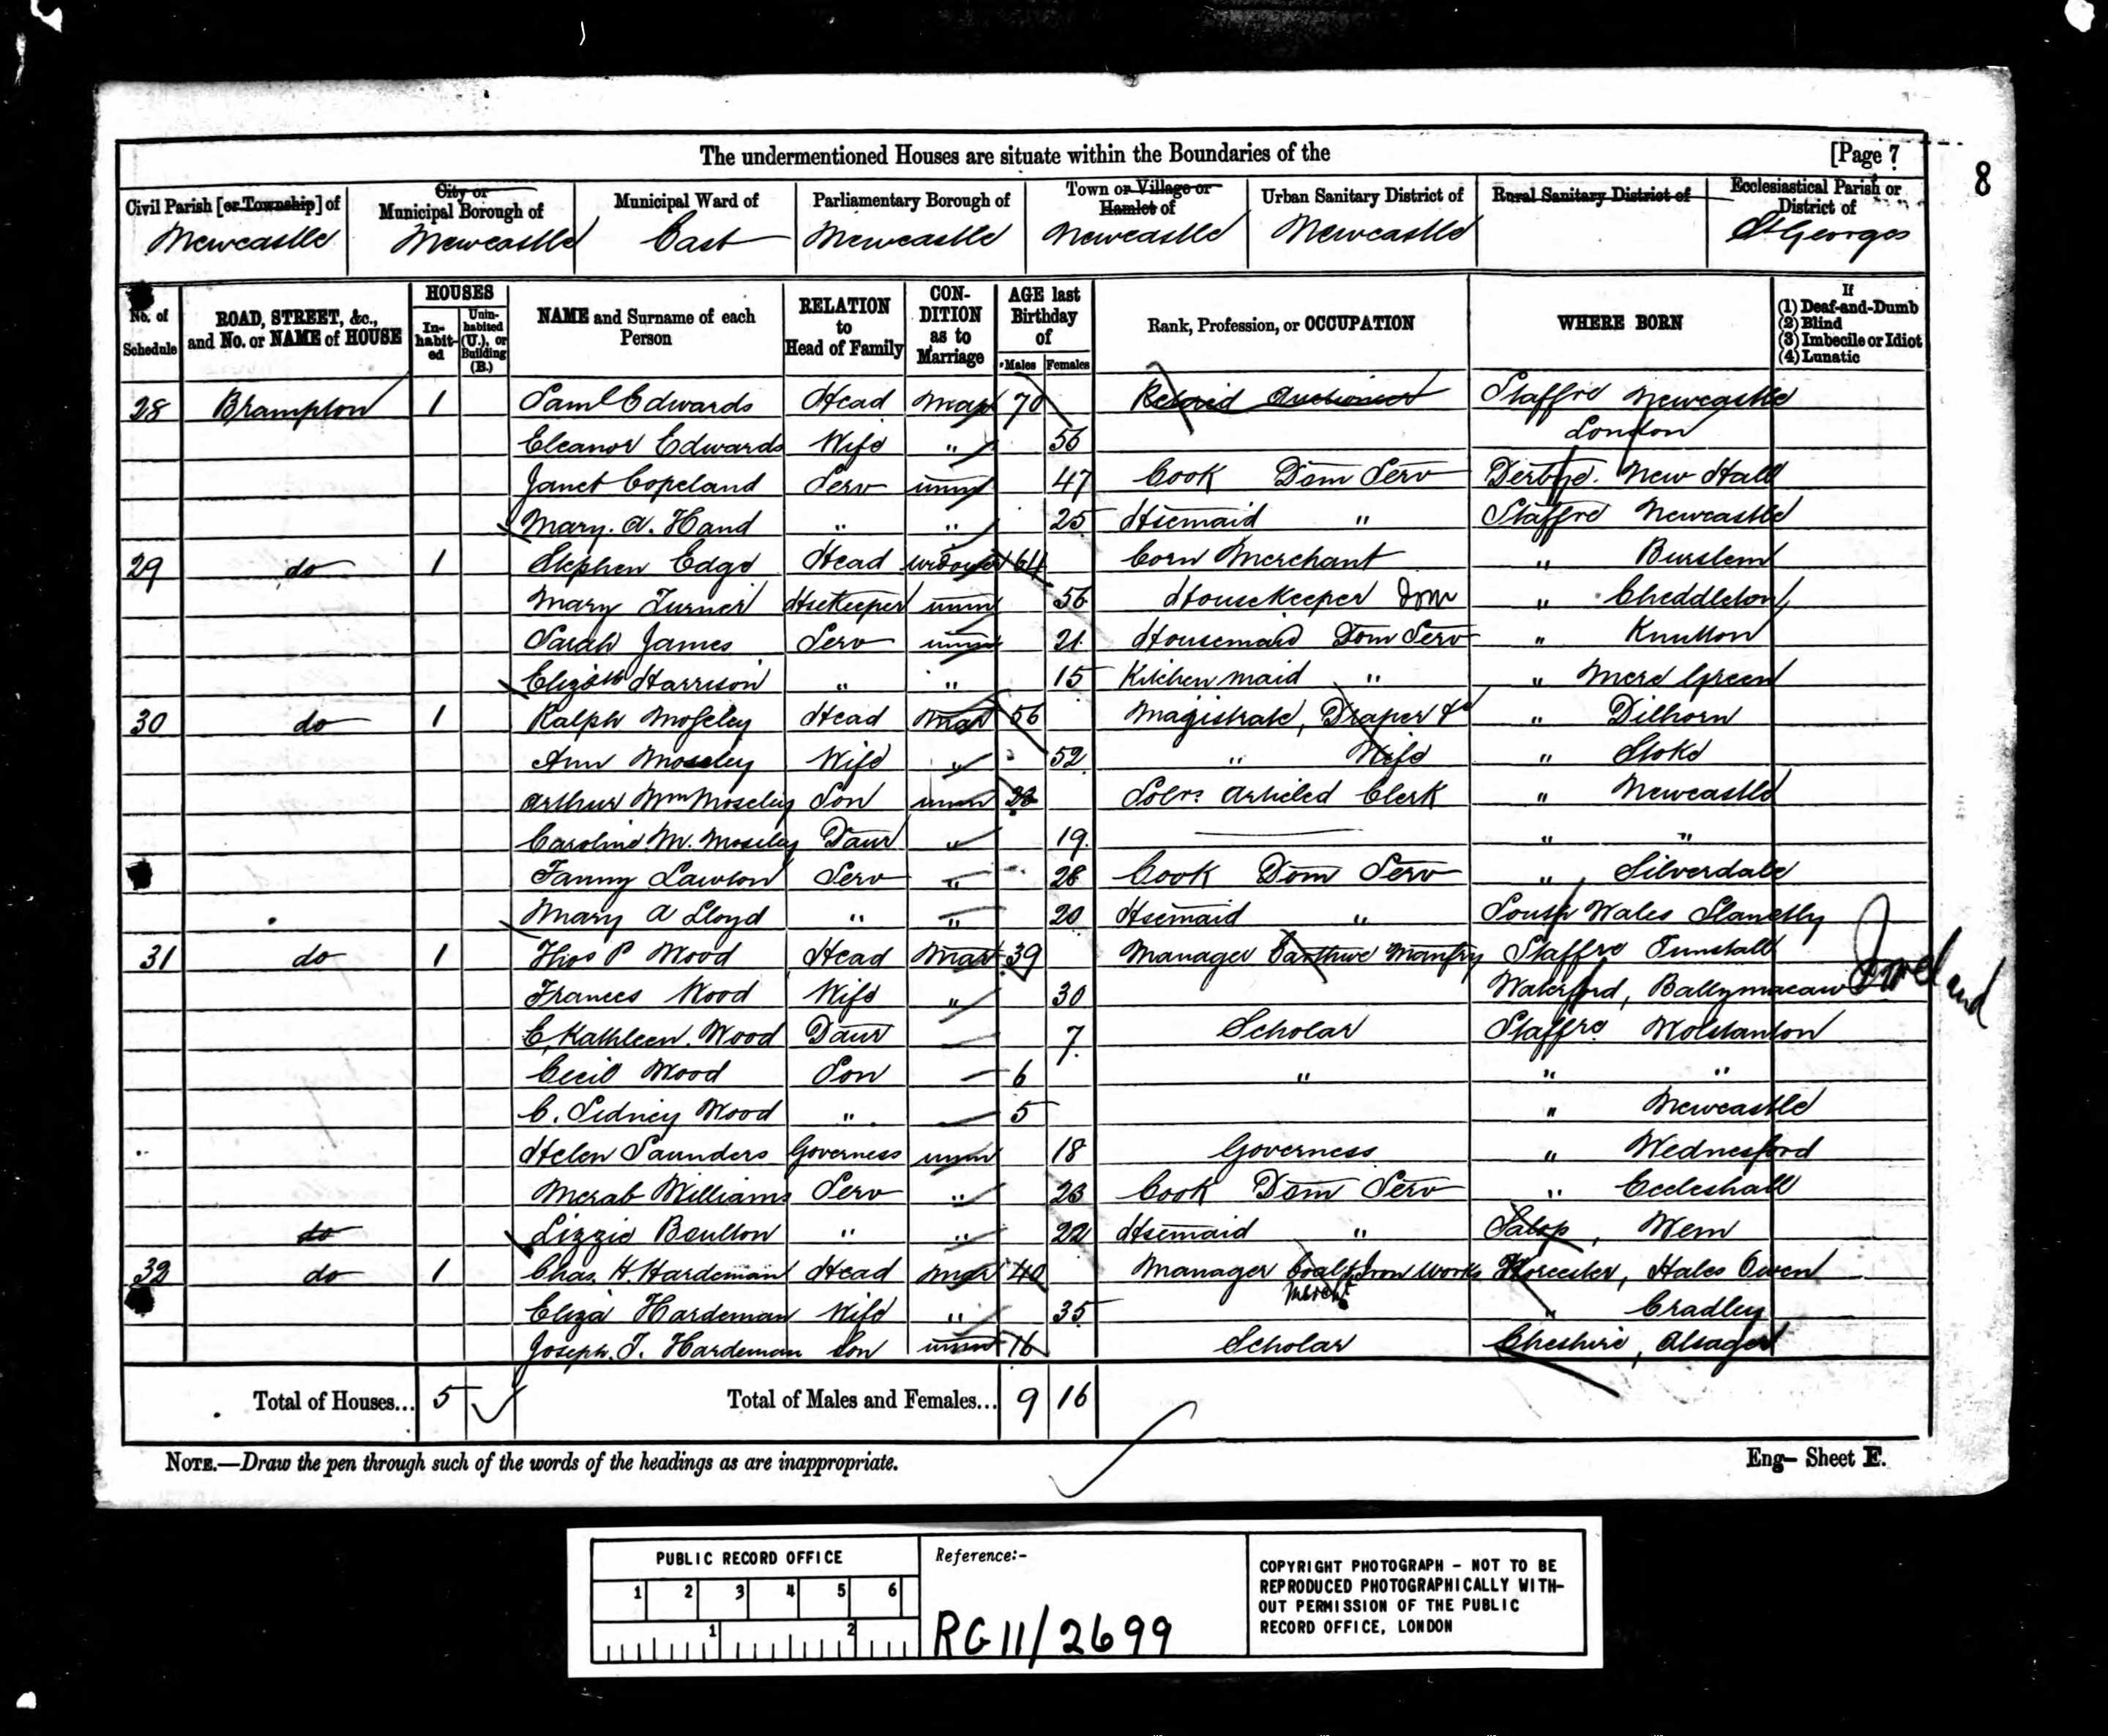 The undermentioned Houses are situate within the Boundaries of the [Page 7
8
Civil Parish [or Township] of City or Municipal Borough of Municipal Ward of Parliamentary Borough of Town or Village or Hamlet of Urban Sanitary District of Rural Sanitary District of Ecclesiastical Parish or District of
Newcastle Newcastle East Newcastle Newcastle Newcastle St Georges
No. of Schedule ROAD, STREET, &c., and No. or NAME of HOUSE HOUSES Inhabited Uninhabited (U.), or Building (B.) NAME and Surname of each Person RELATION to Head of Family CONDITION as to Marriage AGE last Birthday of Males Females Rank, Profession, or OCCUPATION WHERE BORN If (1) Deaf-and-Dumb (2) Blind (3) Imbecile or Idiot (4) Lunatic
28 Brampton 1 Saml Edwards Head Mar 70 Retired Auctioneer Staffre Newcastle
Eleanor Edwards Wife " 56 London
Janet Copeland Serv unm 47 Cook Dom Serv Derbye. New Hall
Mary. A. Hand " " 25 Hsemaid " Staffre Newcastle
29 do 1 Stephen Edge Head Widower 64 Corn Merchant " Burslem
Mary Turner Hsekeeper unm 56 Housekeeper Dom " Cheddleton
Sarah James Serv unm 21 Housemaid Dom Serv " Knutton
Elizbth Harrison " " 15 Kitchen maid " " Mere Green
30 do 1 Ralph Moseley Head Mar 56 Magistrate, Draper &c " Dilhorn
Ann Moseley Wife " 52 " Wife " Stoke
Arthur Wm Moseley Son unm Solrs Articled Clerk " Newcastle
Caroline M. Moseley Daur " 19 " "
Fanny Lawton Serv " 28 Cook Dom Serv " Silverdale
Mary A Lloyd " " 20 Hsemaid " South Wales Llanelly
31 do 1 Thos P Wood Head Mar 39 Manager Earthwe Manfry Staffre Tunstall
Frances Wood Wife " 30 Waterford, Ballymacaw Ireland
C. Kathleen. Wood Daur 7 Scholar Staffre Wolstanton
Cecil Wood Son 6 " " "
C. Sidney Wood " 5 " Newcastle
Helen Saunders Governess unm 18 Governess " Wednesford
Merab Williams Serv " 23 Cook Dom Serv " Eccleshall
do Lizzie Boulton " " 22 Hsemaid " Salop, Wem
32 do 1 Chas. H. Hardeman Head Mar 40 Manager Coal & Iron Works Worcester, Hales Owen
Eliza Hardeman Wife " 35 " Cradley
Joseph. T. Hardeman Son unm 16 Scholar Cheshire, Alsager
Total of Houses... 5 Total of Males and Females... 9 16
NOTE.—Draw the pen through such of the words of the headings as are inappropriate. Eng— Sheet E.
PUBLIC RECORD OFFICE
1 2 3 4 5 6
1 2
Reference:-
RG 11/2699
COPYRIGHT PHOTOGRAPH - NOT TO BE
REPRODUCED PHOTOGRAPHICALLY WITH-
OUT PERMISSION OF THE PUBLIC
RECORD OFFICE, LONDON